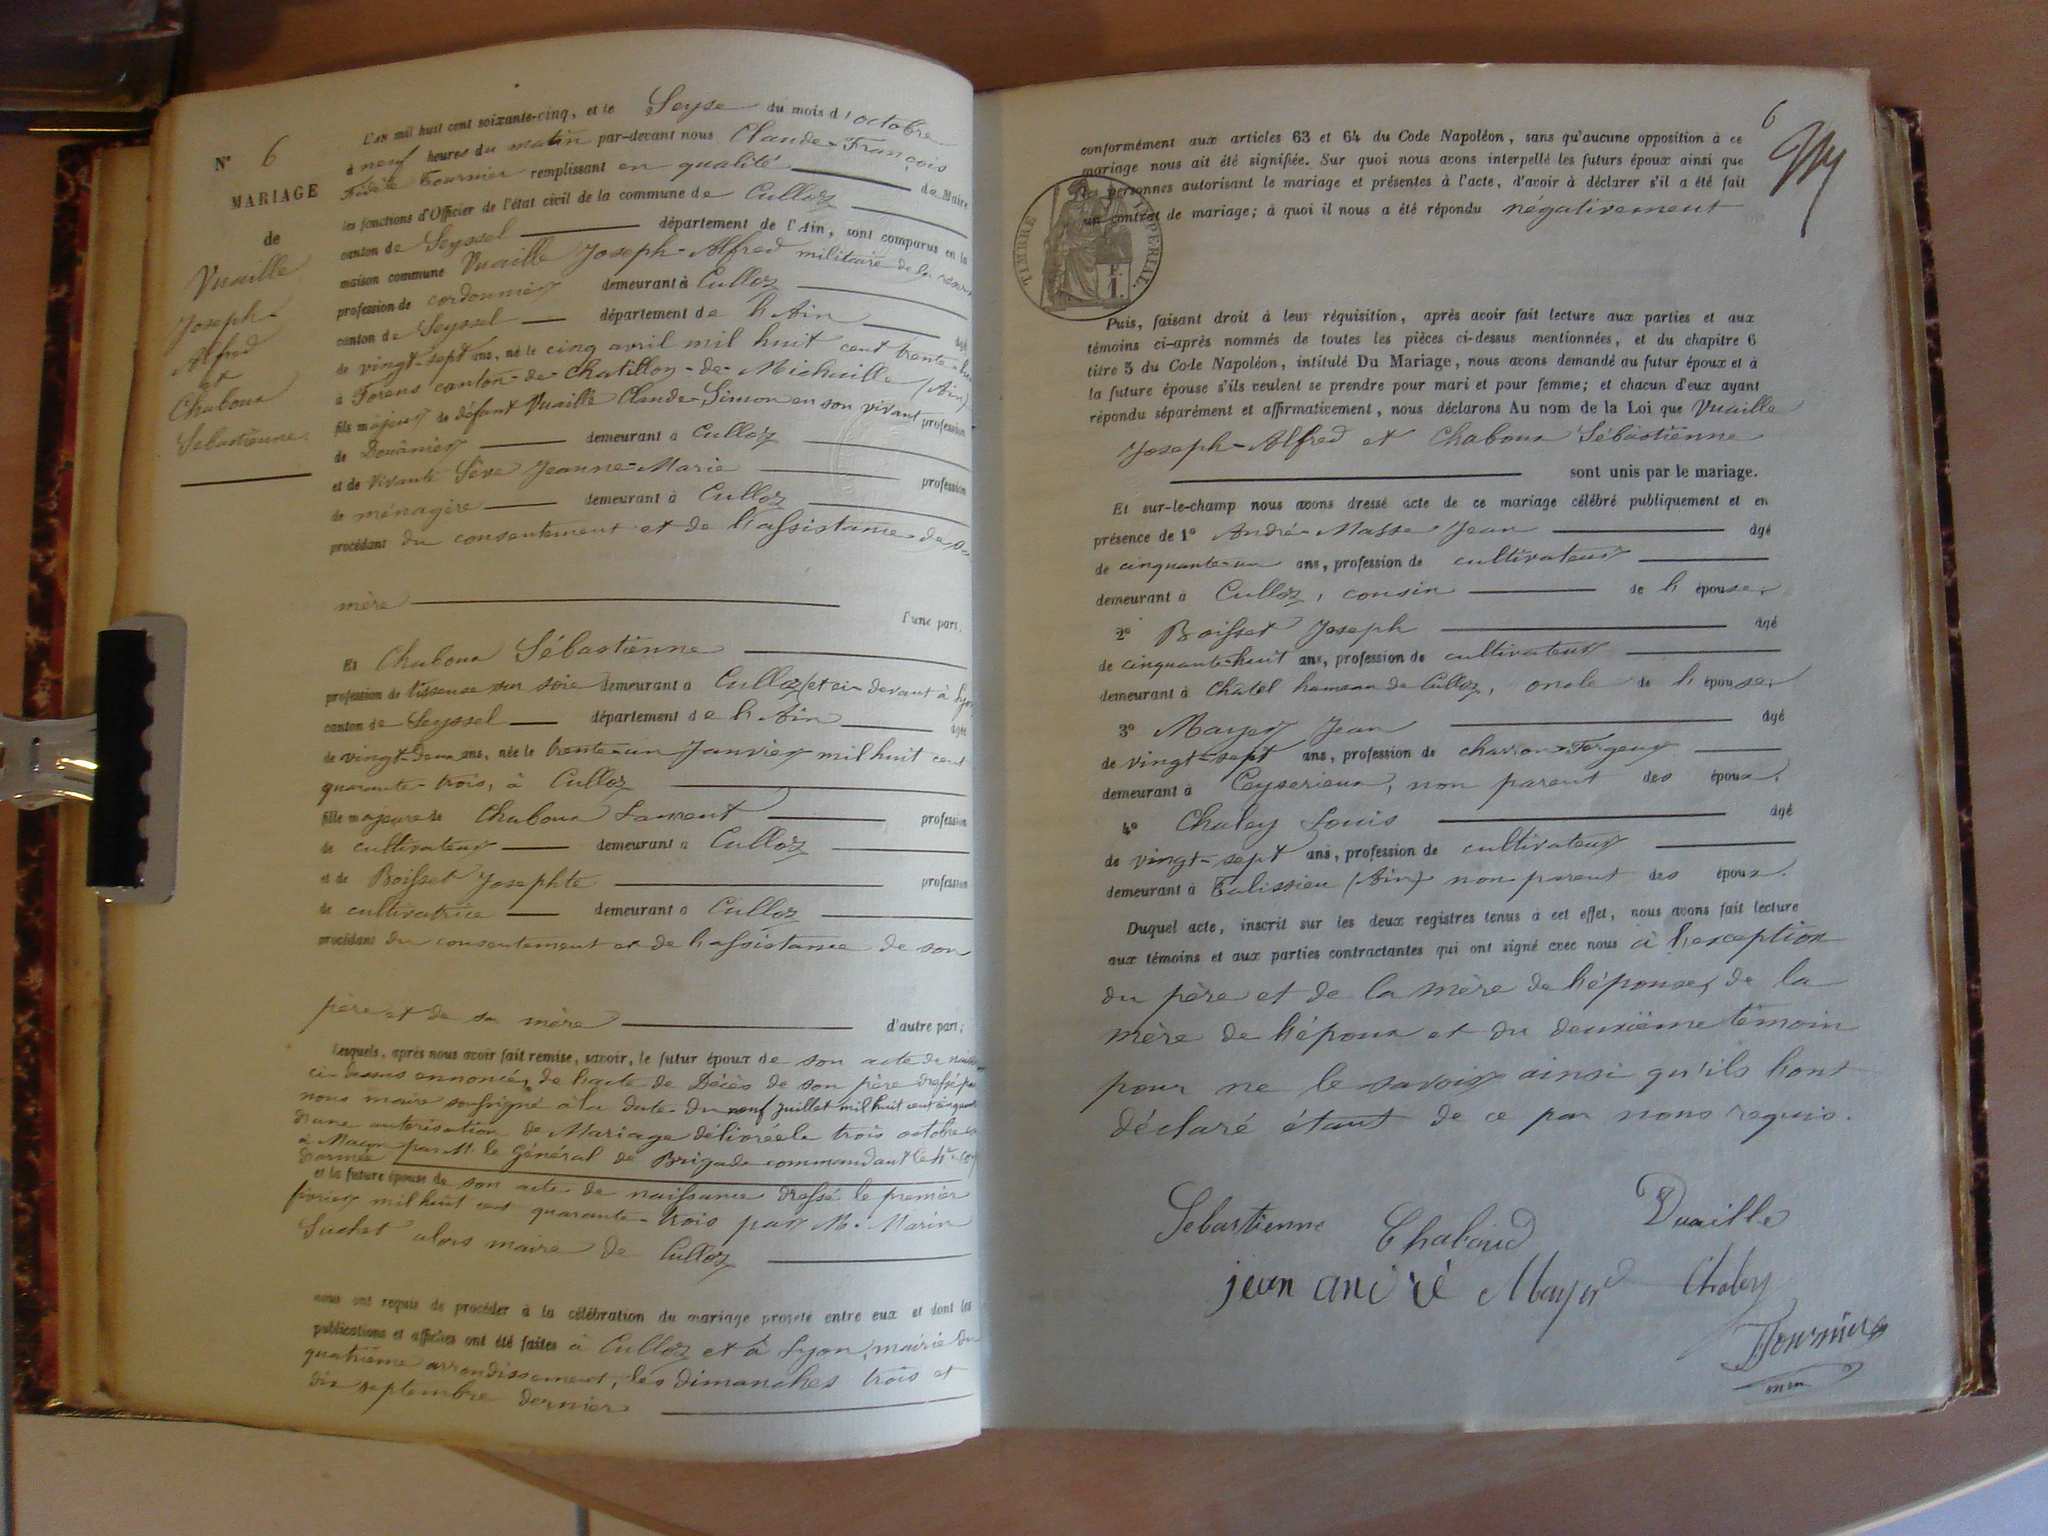 N° 6
MARIAGE
de
Vuaille
Joseph-
Alfred
et
Chaboux
Sébastienne
L'AN mil huit cent soixante-cinq, et le Seyse du mois d'octobre
à neuf heures du matin par-devant nous Claude-François
Fournier remplissant en qualité de Maire
les fonctions d'Officier de l'état civil de la commune de Culloz
canton de Seyssel département de l'Ain, sont comparus en la
maison commune Vuaille Joseph-Alfred militaire de la
profession de cordonnier demeurant à Culloz
canton de Seyssel département de l'Ain âgé
de vingt-sept ans, né le cinq avril mil huit cent trente-
à Forens canton-de-Chatillon-de-Michaille (Ain)
fils majeur de défunt Vuaille Claude-Simon en son vivant profession
de Douanier demeurant à Culloz
et de vivante Sève Jeanne-Marie profession
de ménagère demeurant à Culloz
procédant du consentement et de l'assistance de sa
mère l'une part,
Et Chaboux Sébastienne
profession de tisseuse sur soie demeurant à Culloz (et ci-devant à Lyon
canton de Seyssel département de l'Ain âgée
de vingt-deux ans, née le trente-un Janvier mil huit cent
quarante-trois, à Culloz
fille majeure de Chaboux Laurent profession
de cultivateur demeurant à Culloz
et de Boisset Josephte profession
de cultivatrice demeurant à Culloz
procédant du consentement et de l'assistance de son
père et de sa mère d'autre part;
Lesquels, après nous avoir fait remise, savoir, le futur époux de son acte de
ci-dessus ennoncé, de l'acte de Décès de son père dressé par
nous maire soussigné à la date du neuf juillet mil huit cent
d'une autorisation de Mariage délivrée le trois octobre
à Macon par M. le Général de Brigade commandant le
d'armée
et la future épouse de son acte de naissance dressé le premier
février mil huit cent quarante-trois par M. Marin
Suchet alors maire de Culloz
nous ont requis de procéder à la célébration du mariage projeté entre eux et dont les
publications et affiches ont été faites à Culloz et à Lyon, mairie du
quatrième arrondissement, les dimanches trois et
dix septembre dernier
6
conformément aux articles 63 et 64 du Code Napoléon, sans qu'aucune opposition à ce
mariage nous ait été signifiée. Sur quoi nous avons interpellé les futurs époux ainsi que
les personnes autorisant le mariage et présentes à l'acte, d'avoir à déclarer s'il a été fait
un contrat de mariage; à quoi il nous a été répondu négativement
TIMBRE IMPÉRIAL.
F.
1.
Puis, faisant droit à leur réquisition, après avoir fait lecture aux parties et aux
témoins ci-après nommés de toutes les pièces ci-dessus mentionnées, et du chapitre 6
titre 5 du Code Napoléon, intitulé Du Mariage, nous avons demandé au futur époux et à
la future épouse s'ils veulent se prendre pour mari et pour femme; et chacun d'eux ayant
répondu séparément et affirmativement, nous déclarons Au nom de la Loi que Vuaille
Joseph-Alfred et Chaboux Sébastienne
sont unis par le mariage.
Et sur-le-champ nous avons dressé acte de ce mariage célébré publiquement et en
présence de 1° André-Masse Jean âgé
de cinquante-un ans, profession de cultivateur
demeurant à Culloz, cousin de l'épouse,
2° Boisset Joseph âgé
de cinquante-huit ans, profession de cultivateur
demeurant à Châtel hameau de Culloz, oncle de l'épouse,
3° Mayer Jean âgé
de vingt-sept ans, profession de charron-Forgeur
demeurant à Ceyserieux, non parent des époux,
4° Chaley Louis âgé
de vingt-sept ans, profession de cultivateur
demeurant à Talissieu (Ain) non parent des époux.
Duquel acte, inscrit sur les deux registres tenus à cet effet, nous avons fait lecture
aux témoins et aux parties contractantes qui ont signé avec nous à l'exception
du père et de la mère de l'épouse, de la
mère de l'époux et du deuxième témoin
pour ne le savoir ainsi qu'ils l'ont
déclaré étant de ce par nous requis.
Sebastienne Chaboud Vuaille
jean andré Mayer Chaley
Fournier